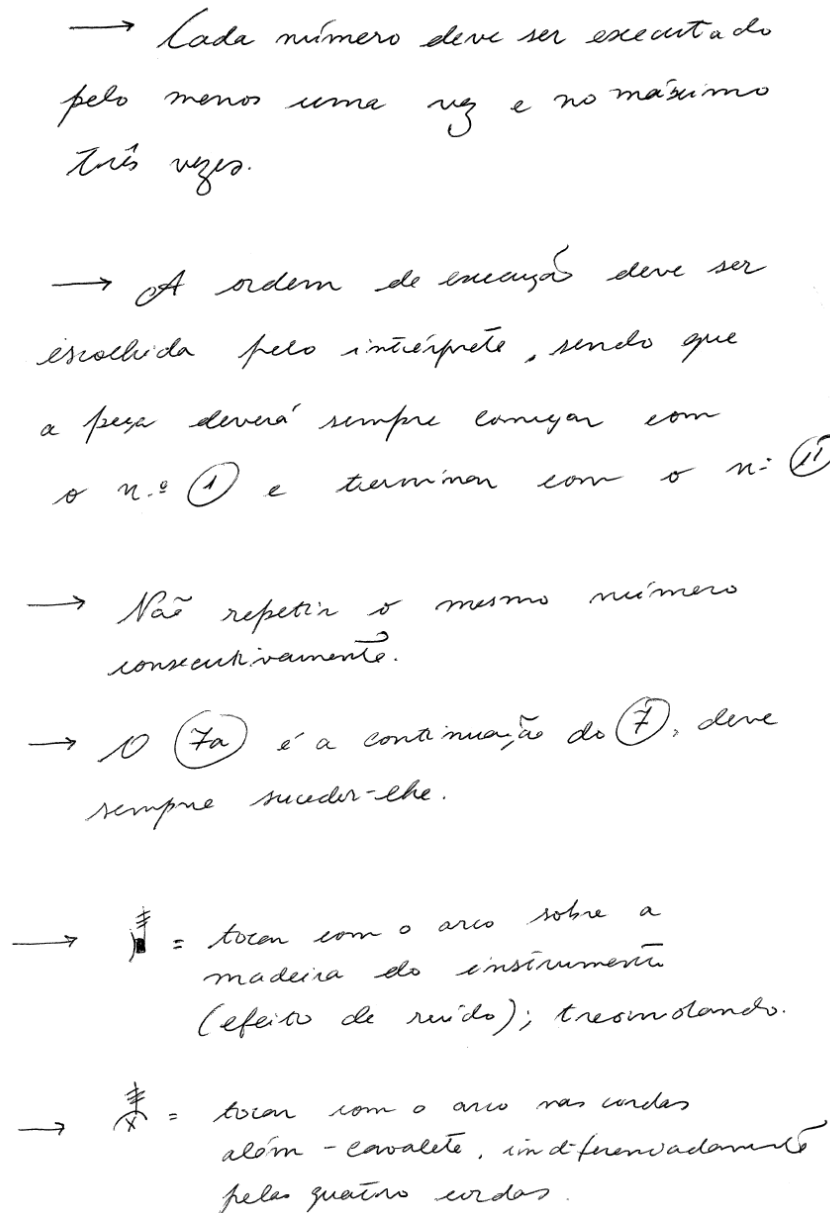 → Cada número deve ser executado
pelo menos uma vez e no máximo
três vezes.
→ A ordem de execução deve ser
escolhida pelo intérprete, sendo que
a peça deverá sempre começar com
o n.º 1 e terminar com o n.º 11
→ Não repetir o mesmo número
consecutivamente.
→ O 7a é a continuação do 7, deve
sempre suceder-lhe.
→ = tocar com o arco sobre a
madeira do instrumento
(efeito de ruído); tremolando.
→ = tocar com o arco nas cordas
além-cavalete, indiferenciadamente
pelas quatro cordas.